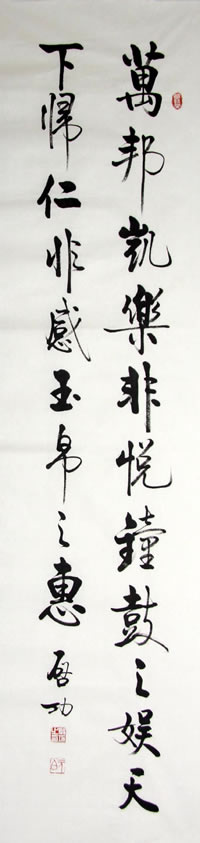 萬邦凱樂非悅鐘鼓之娛天
下歸仁非感玉帛之惠
啓功